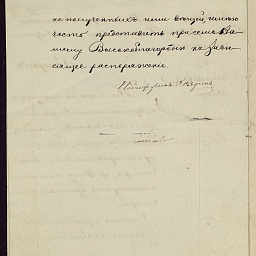 не полученныхъ ими вещей, имѣю
честь представить при семъ Ва
шему Высокоблагородію на зави
сящее распоряженіе.